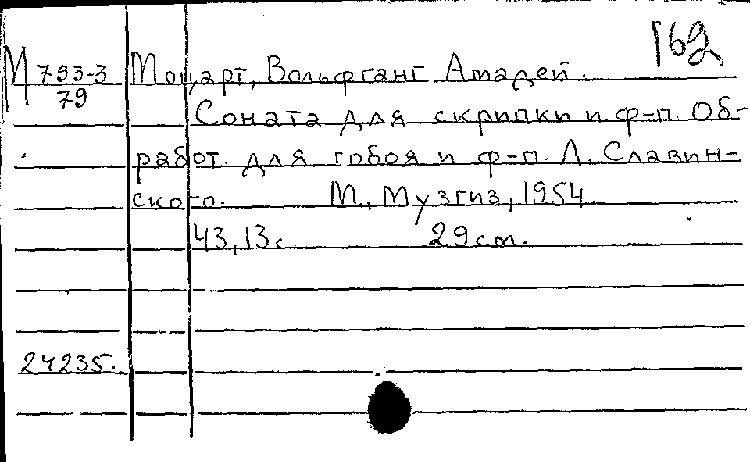 162
М 793-3 Моцарт, Вольфганг Амадей.
79
Соната для скрипки и ф-п. Об-
работ. для гобоя и ф-п. Л. Славин-
ского. М., Музгиз, 1954
43, 13 с 29 см.
24235.